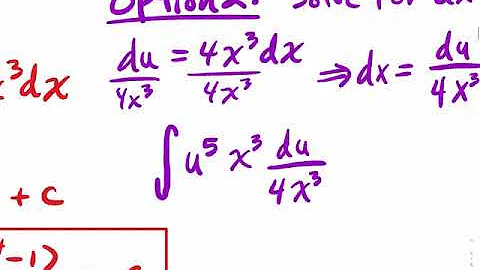 Option 2: Solve for dx
du/4x³ = 4x³dx/4x³ ⇒ dx = du/4x³
x³dx
∫ u⁵ x³ du/4x³
+ c